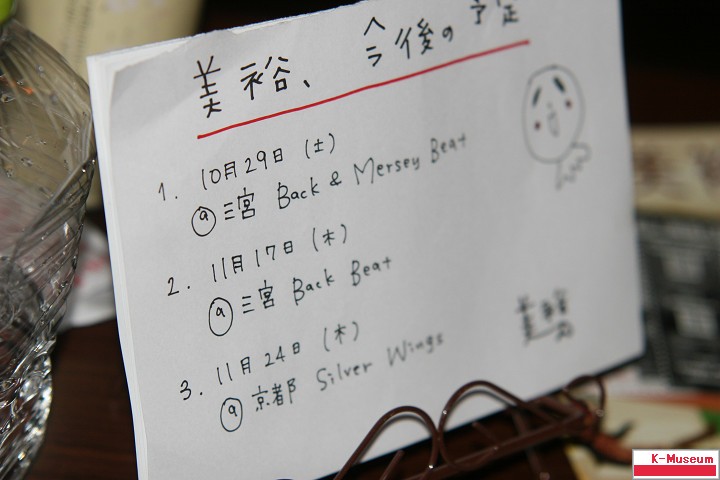 美裕、今後の予定
1. 10月29日(土)
@三宮 Back & Mersey Beat
2. 11月17日(木)
@三宮 Back Beat
3. 11月24日(木)
@京都 Silver Wings
K-Museum